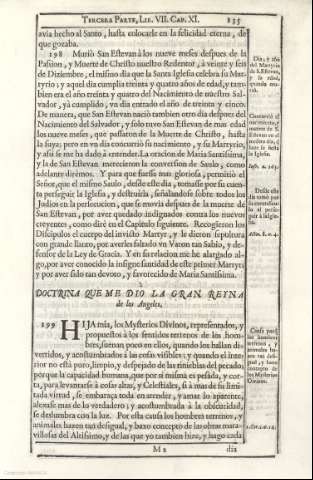 TERCERA PARTE, LIB. VII. CAP. XI. 135
avia hecho al Santo, hasta colocarle en la felicidad eterna, de
que gozaba.
198 Muriò San Estevan à los nueve meses despues de la
Passion, y Muerte de Christo nuestro Redentor, à veinte y seis
de Diziembre, el mismo dia que la Santa Iglesia celebra su Mar-
tyrio; y aquel dia cumplia treinta y quatro años de edad, y tam-
bien era el año treinta y quatro del Nacimiento de nuestro Sal-
vador, yà cumplido, vn dia entrado el año de treinta y cinco.
De manera, que San Estevan naciò tambien otro dia despues del
Nacimiento del Salvador, y solo tuvo San Estevan de mas edad
los nueve meses, que passaron de la Muerte de Christo, hasta
la suya; pero en vn dia concurriò su nacimiento, y su Martyrio,
y assi se me ha dado à entender. La oracion de Maria Santissima,
y la de San Estevan merecieron la conversion de Saulo, como
adelante dirèmos. Y para que fuesse mas gloriosa, permitiò el
Señor, que el mismo Saulo, desde este dia, tomasse por su cuen-
ta perseguir la Iglesia, y destruirla, señalandose sobre todos los
Judios en la persecucion, que se movia despues de la muerte de
San Estevan, por aver quedado indignados contra los nuevos
creyentes, como dirè en el Capitulo siguiente. Recogieron los
Discipulos el cuerpo del invicto Martyr, y le dieron sepultura
con grande llanto, por averles faltado vn Varon tan Sabio, y de-
fensor de la Ley de Gracia. Y en su relacion me he alargado al-
go, por aver conocido la insigne santidad de este primer Martyr;
y por aver sido tan devoto, y favorecido de Maria Santissima.
DOCTRINA QUE ME DIO LA GRAN REYNA
de los Angeles.
199 HIJA mia, los Mysterios Divinos, representados, y
propuestos à los sentidos terrenos de los hom-
bres, suenan poco en ellos, quando los hallan di-
vertidos, y acostumbrados à las cosas visibles; y quando el inte-
rior no està puro, limpio, y despejado de las tinieblas del pecado;
por que la capacidad humana, que por sì misma es pesada, y cor-
ta, para levantarse à cosas altas, y Celestiales, si à mas de su limi-
tada virtud, se embaraza toda en atender, y amar lo aparente,
alexase mas de lo verdadero; y acostumbrada à la obscuridad,
se deslumbra con la luz. Por esta causa los hombres terrenos, y
animales hazen tan desigual, y baxo concepto de las obras mara-
villosas del Altissimo, y de las que yo tambien hize, y hago cada
M 2 dia
Dia, y año
del Martyrio
de S. Estevan,
y la edad,
que tenia
Concurriò el
nacimiento, y
muerte de S.
Estevan en el
mesmo dia, q̃
haze la fiesta
la Iglesia.
Infr. n. 263.
Desde este
dia tomò Saulo
por su cuenta
perseguir à la
Iglesia.
Act. 8. v. 4.
1. Cor. 2. v. 14.